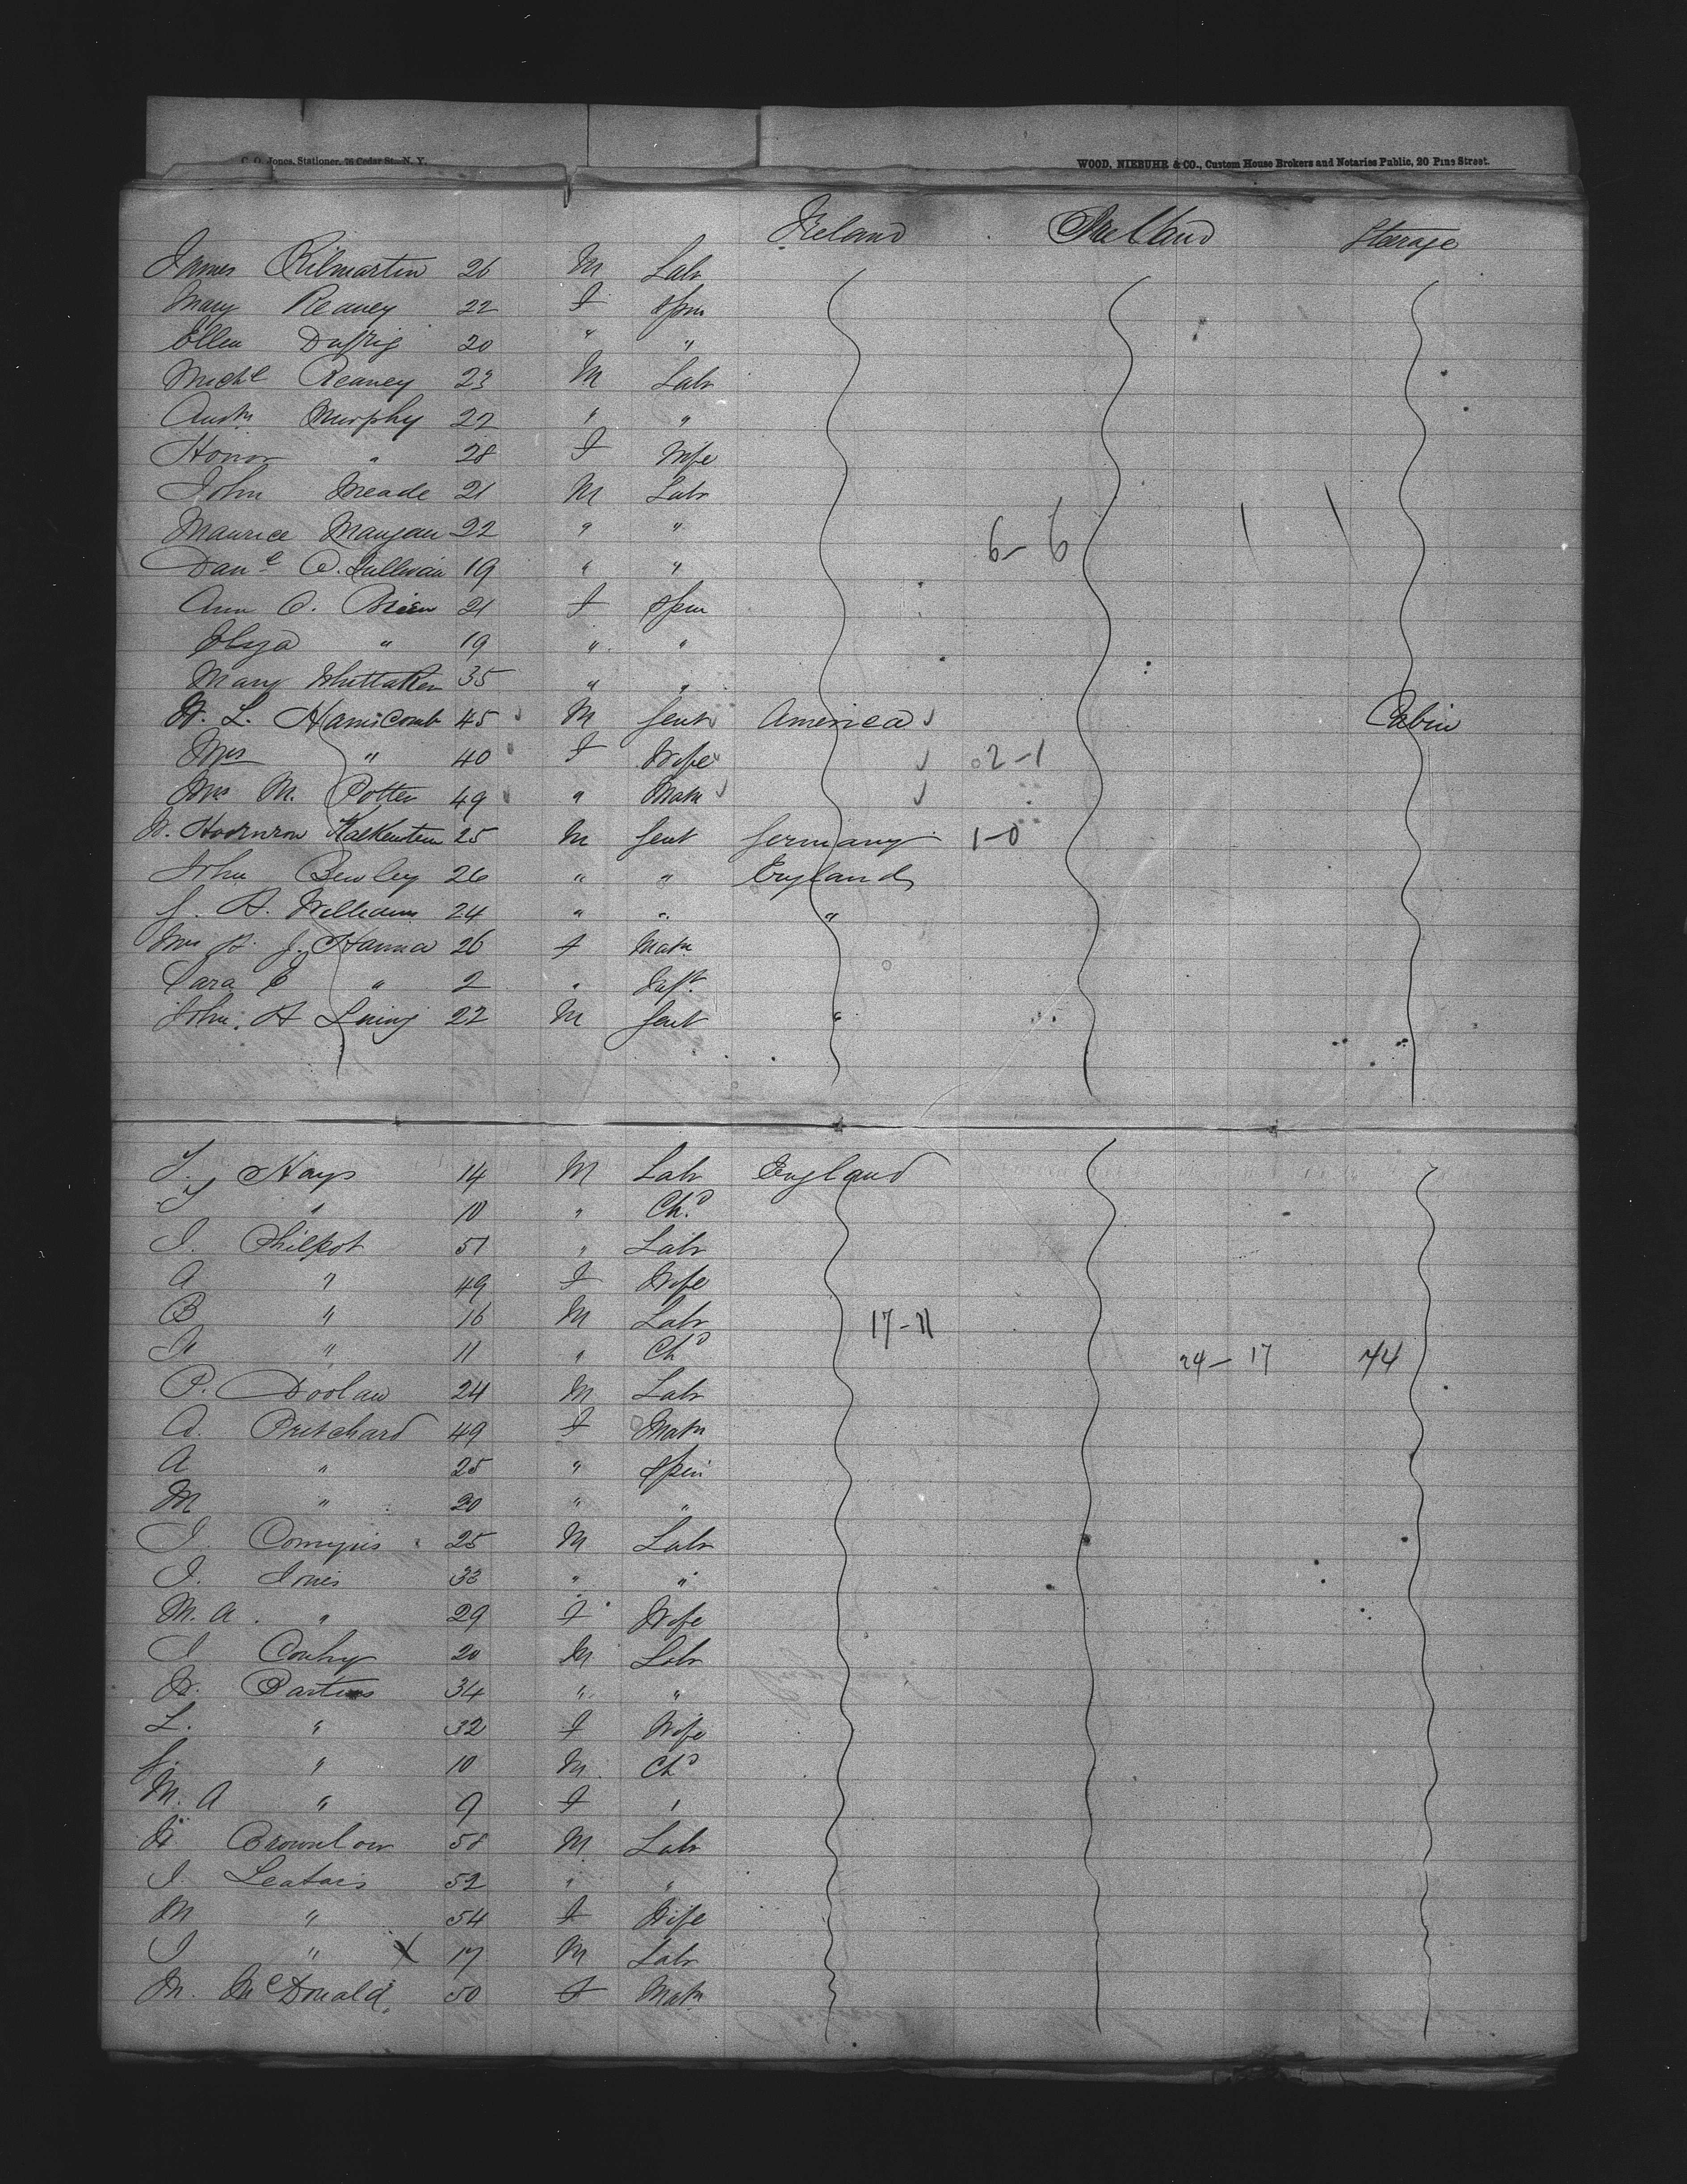 C. O. Jones, Stationer, 76 Cedar St., N. Y. WOOD, NIEBUHR & CO., Custom House Brokers and Notaries Public, 20 Pine Street.
Ireland Steerage
James Kilmartin 26 M Labr
Mary Reaney 22 F Spin
Ellen 20 " "
Michl Reaney 23 M Labr
Austn Murphy 22 " "
Honor " 28 F Wife
John Meade 21 M Labr
Maurice Mangan 22 " "
6-6
Danl O. Sullivan 19 " "
Ann O. Brien 21 F Spin
Eliza " 19 " "
Mary Whittaker 35 " "
W. L. Hanscomb 45 M Gent America Cabin
Mrs " 40 F Wife 2-1
Mrs M. Potter 49 " Matn
25 M Gent Germany 1-0
John Bewley 26 " " England
J. A. Williams 24 " " "
Mrs A. J. Hanna 26 F Matn
Cara E " 2 " Inft
John A 22 M Gent "
T. Hays 14 M Labr England
T " 10 " Chd
J. Philpot 51 " Labr
A " 49 F Wife
B " 16 M Labr 17-11
" 11 " Chd 24-17 44
P. Doolan 24 M Labr
A. Pritchard 49 F Matn
A " 25 " Spin
M " 20 " "
J. 25 M Labr
J. Jones 33 " "
M. A. " 29 F Wife
J 20 M Labr
34 " "
L. " 32 F Wife
J. " 10 M Chd
M. A " 9 F "
Brownlow 58 M Labr
J. 52 " "
M " 54 F Wife
J " X 17 M Labr
M. McDonald 50 F Matn